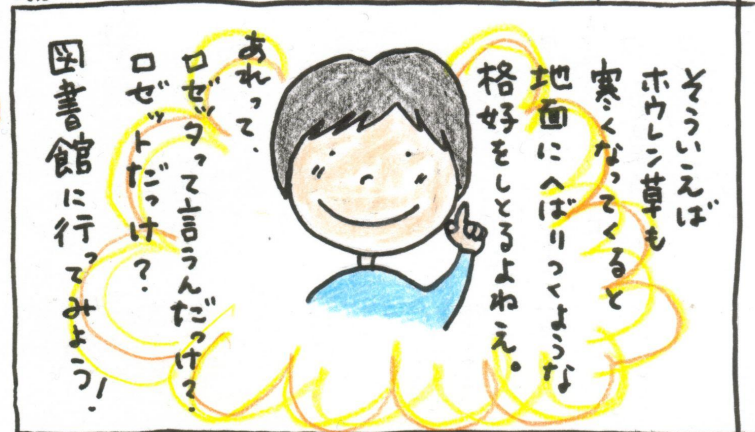 そういえば
ホウレン草も
寒くなってくると
地面にへばりつくような
格好をしとるよねえ。
あれって、
ロゼッタって言うんだっけ?
ロゼットだっけ?
図書館に行ってみよう!